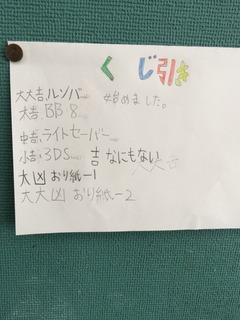 くじ引き
大大吉、ルンバ 始めました。
大吉、BB8
中吉、ライトセーバー
小吉、3DS 吉 なにもない
大凶 おり紙ー1
大大凶 おり紙ー2